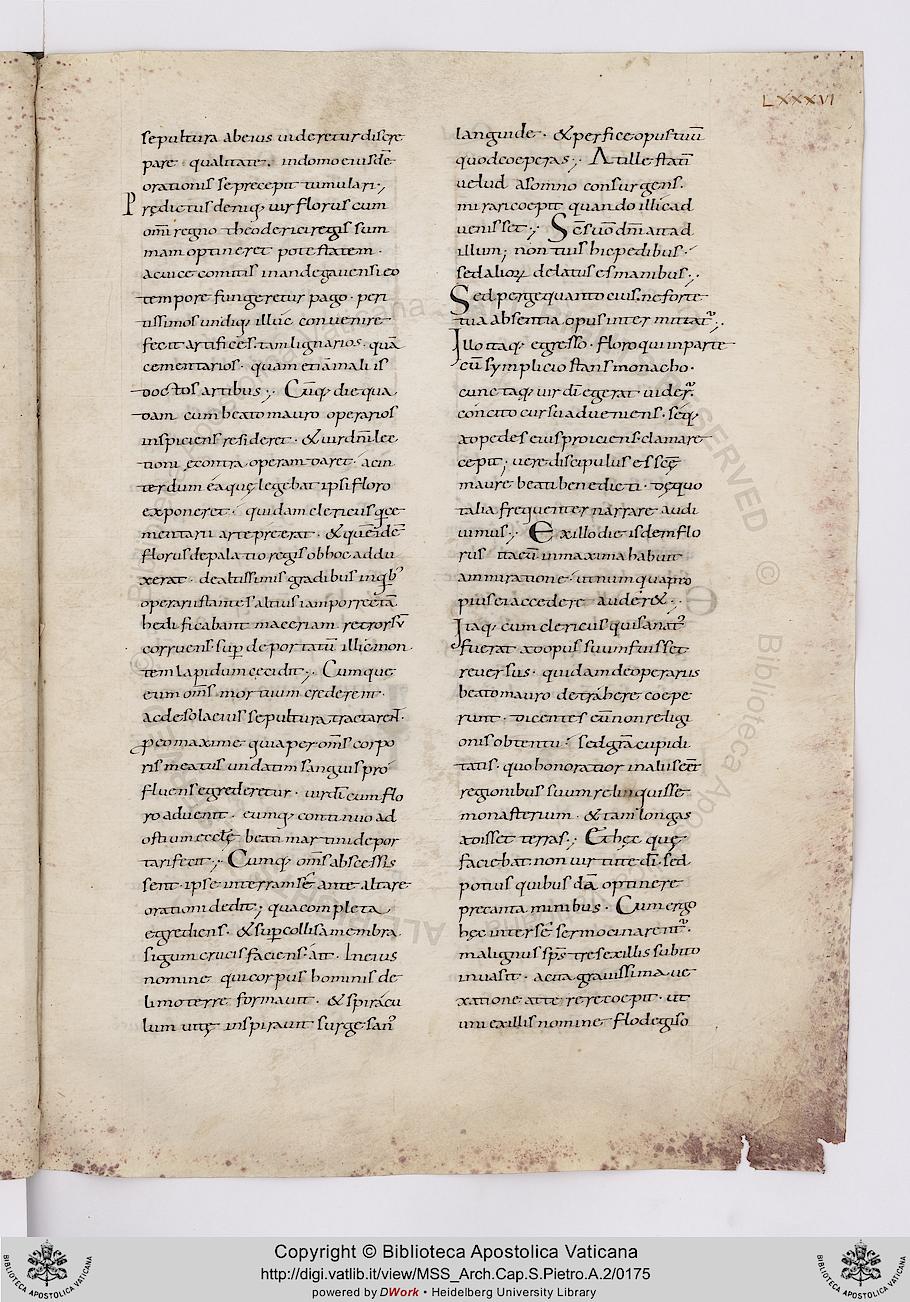 LXXXVI
sepultura ab eius uideretur discre
pare qualitate. in domo eiusdē
orationis se precepit tumulari;
Prędictus deniq; uir florus cum
om̄i regno theoderici regis sum
mam optineret potestatem.
ac uice comitis in andegauensi eo
tempore fungeretur pago. peri
tissimos undiq; illuc conuenire
fecit artifices. tam lignarios. quā
cementarios. quam etiā mali is
doctos artibus; Cūq; die qua
dam cum beato mauro operarios
inspiciens resideret. & uir dn̄i lec
tioni econtra operam daret. ac in
terdum ea quę legebat ipsi floro
exponeret. quidam clericus q̨ ce
mentarii arte pręerat. & quē idē
florus de palatio regis ob hoc addu
xerat. de altissimis gradibus in q̨b;
operarii stantes altius iam porrectā
hedificabant maceriam. retrorsū
corruens. sup̱ deportatū illic mon
tem lapidum cecidit; Cumque
eum om̄s mortuum crederent.
ac de sola eius sepultura tractarent.
p̱eo maxime quia per om̄s corpo
ris meatus undatim sanguis pro
fluens egrederetur. uir dī cum flo
ro aduenit. eumq; continuo ad
ostium ecclę̄ beati martini depor
tari fecit; Cumq; om̄s abscessis
sent. ipse in terram sē ante altare
orationi dedit; qua completa
egrediens. & sup̱ collisa membra
signum crucis faciens. ait. In eius
nomine qui corpus hominis de
limo terre formauit. & spiracu
lum uitę inspirauit surge san̄
languide. & perfice opus tuū
quod coeperas; At ille statī
uelud a somno consurgens.
mirari coepit quando illic ad
uenisset; Sēs uō dn̄i ait ad
illum; non tuis hic pedibus.
sed alioꝝ delatus es manibus;
Sed perge quanto cius. ne forte
tua absentia opus intermittat᷑;
Illo itaq; egresso. floro qui in parte
cū symplicio stans monacho.
cuncta q; uir dī egerat uider̄.
concito cursu adueniens. seq;
ad pedes eius proiciens. clamare
cepit; uere discipulus es sc̄ę
maure beati benedicti. de quo
talia frequenter narrare audi
uimus; Ex illo die isdem flo
rus ita eū in maxima habuit
ammiratione. ut numquā pro
pius ei accedere auder&;
Itaq; cum clericus qui sanat᷑
fuerat ad opus suum fuisset
reuersus. quidam de operariis
beato mauro detrahere coepe
runt. dicentes eū non religi
onis obtentu. sed gr̄a cupidi
tatis. quo honoratior in alus eēt
regionibus suum relinquisse
monasterium. & tam longas
adisset terras; Et hęc quę
faciebat non uirtute dī. sed
potius quibusdā optinere
precantaminibus. Cum ergo
hęc inter sē sermocinarent᷑.
malignus sp̄s tres ex illis subito
inuasit. ac ita grauissima ue
xatione atterere coepit. ut
uni ex illis nomine flodegiso
Copyright © Biblioteca Apostolica Vaticana
http://digi.vatlib.it/view/MSS_Arch.Cap.S.Pietro.A.2/0175
powered by DWork • Heidelberg University Library